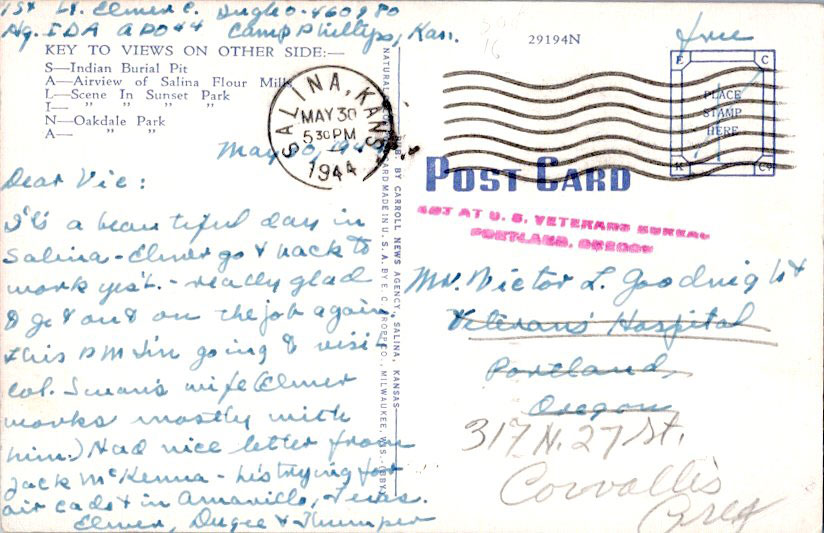 1st Lt. Elmer C. Dugko-460980
Hq. IDA APO 44 Camp Phillips, Kan.
KEY TO VIEWS ON OTHER SIDE:—
S—Indian Burial Pit
A—Airview of Salina Flour Mills
L—Scene In Sunset Park
I— " " " "
N—Oakdale Park
A— " "
SALINA, KANS.
MAY 30
5 30 PM
1944
May 30, 1944
Dear Vic:
It's a beautiful day in
Salina - Elmer go't back to
work yes't. - really glad
to get out on the job again
this PM I'm going to visit
Col. wife (Elmer
works mostly with
him.) Had nice letter from
Jack McKenna - he's trying for
air cadet in Amarillo, Texas.
Elmer, Dugee & Thumper
BY CARROLL NEWS AGENCY, SALINA, KANSAS
MADE IN U. S. A. BY E. C. KROPP CO., MILWAUKEE, WIS.
29194N
free
PLACE
STAMP
HERE
E C K Co
POST CARD
AT U. S. VETERANS BUREAU
PORTLAND, OREGON
Mr. Victor L. Goodnight
Veterans' Hospital
Portland,
Oregon
317 N. 27 St.
Corvallis
Oreg